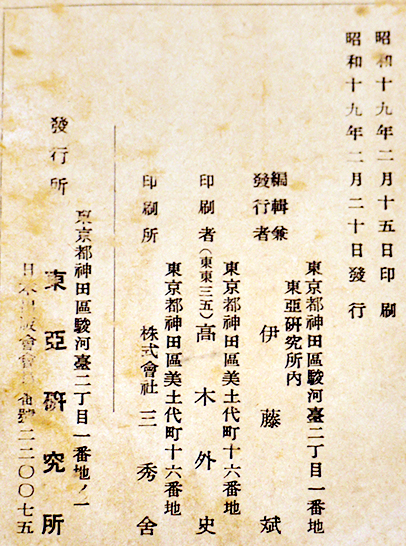 昭和十九年二月十五日印刷
昭和十九年二月二十日發行
東京都神田區駿河臺二丁目一番地
東亞硏究所內
編輯兼
發行者 伊藤斌
東京都神田區美土代町十六番地
印刷者(東東三五)高木外史
東京都神田區美土代町十六番地
印刷所 株式會社 三秀舍
發行所
東京都神田區駿河臺二丁目一番地ノ一
東亞硏究所
日本出版會會員番號二二〇〇七五